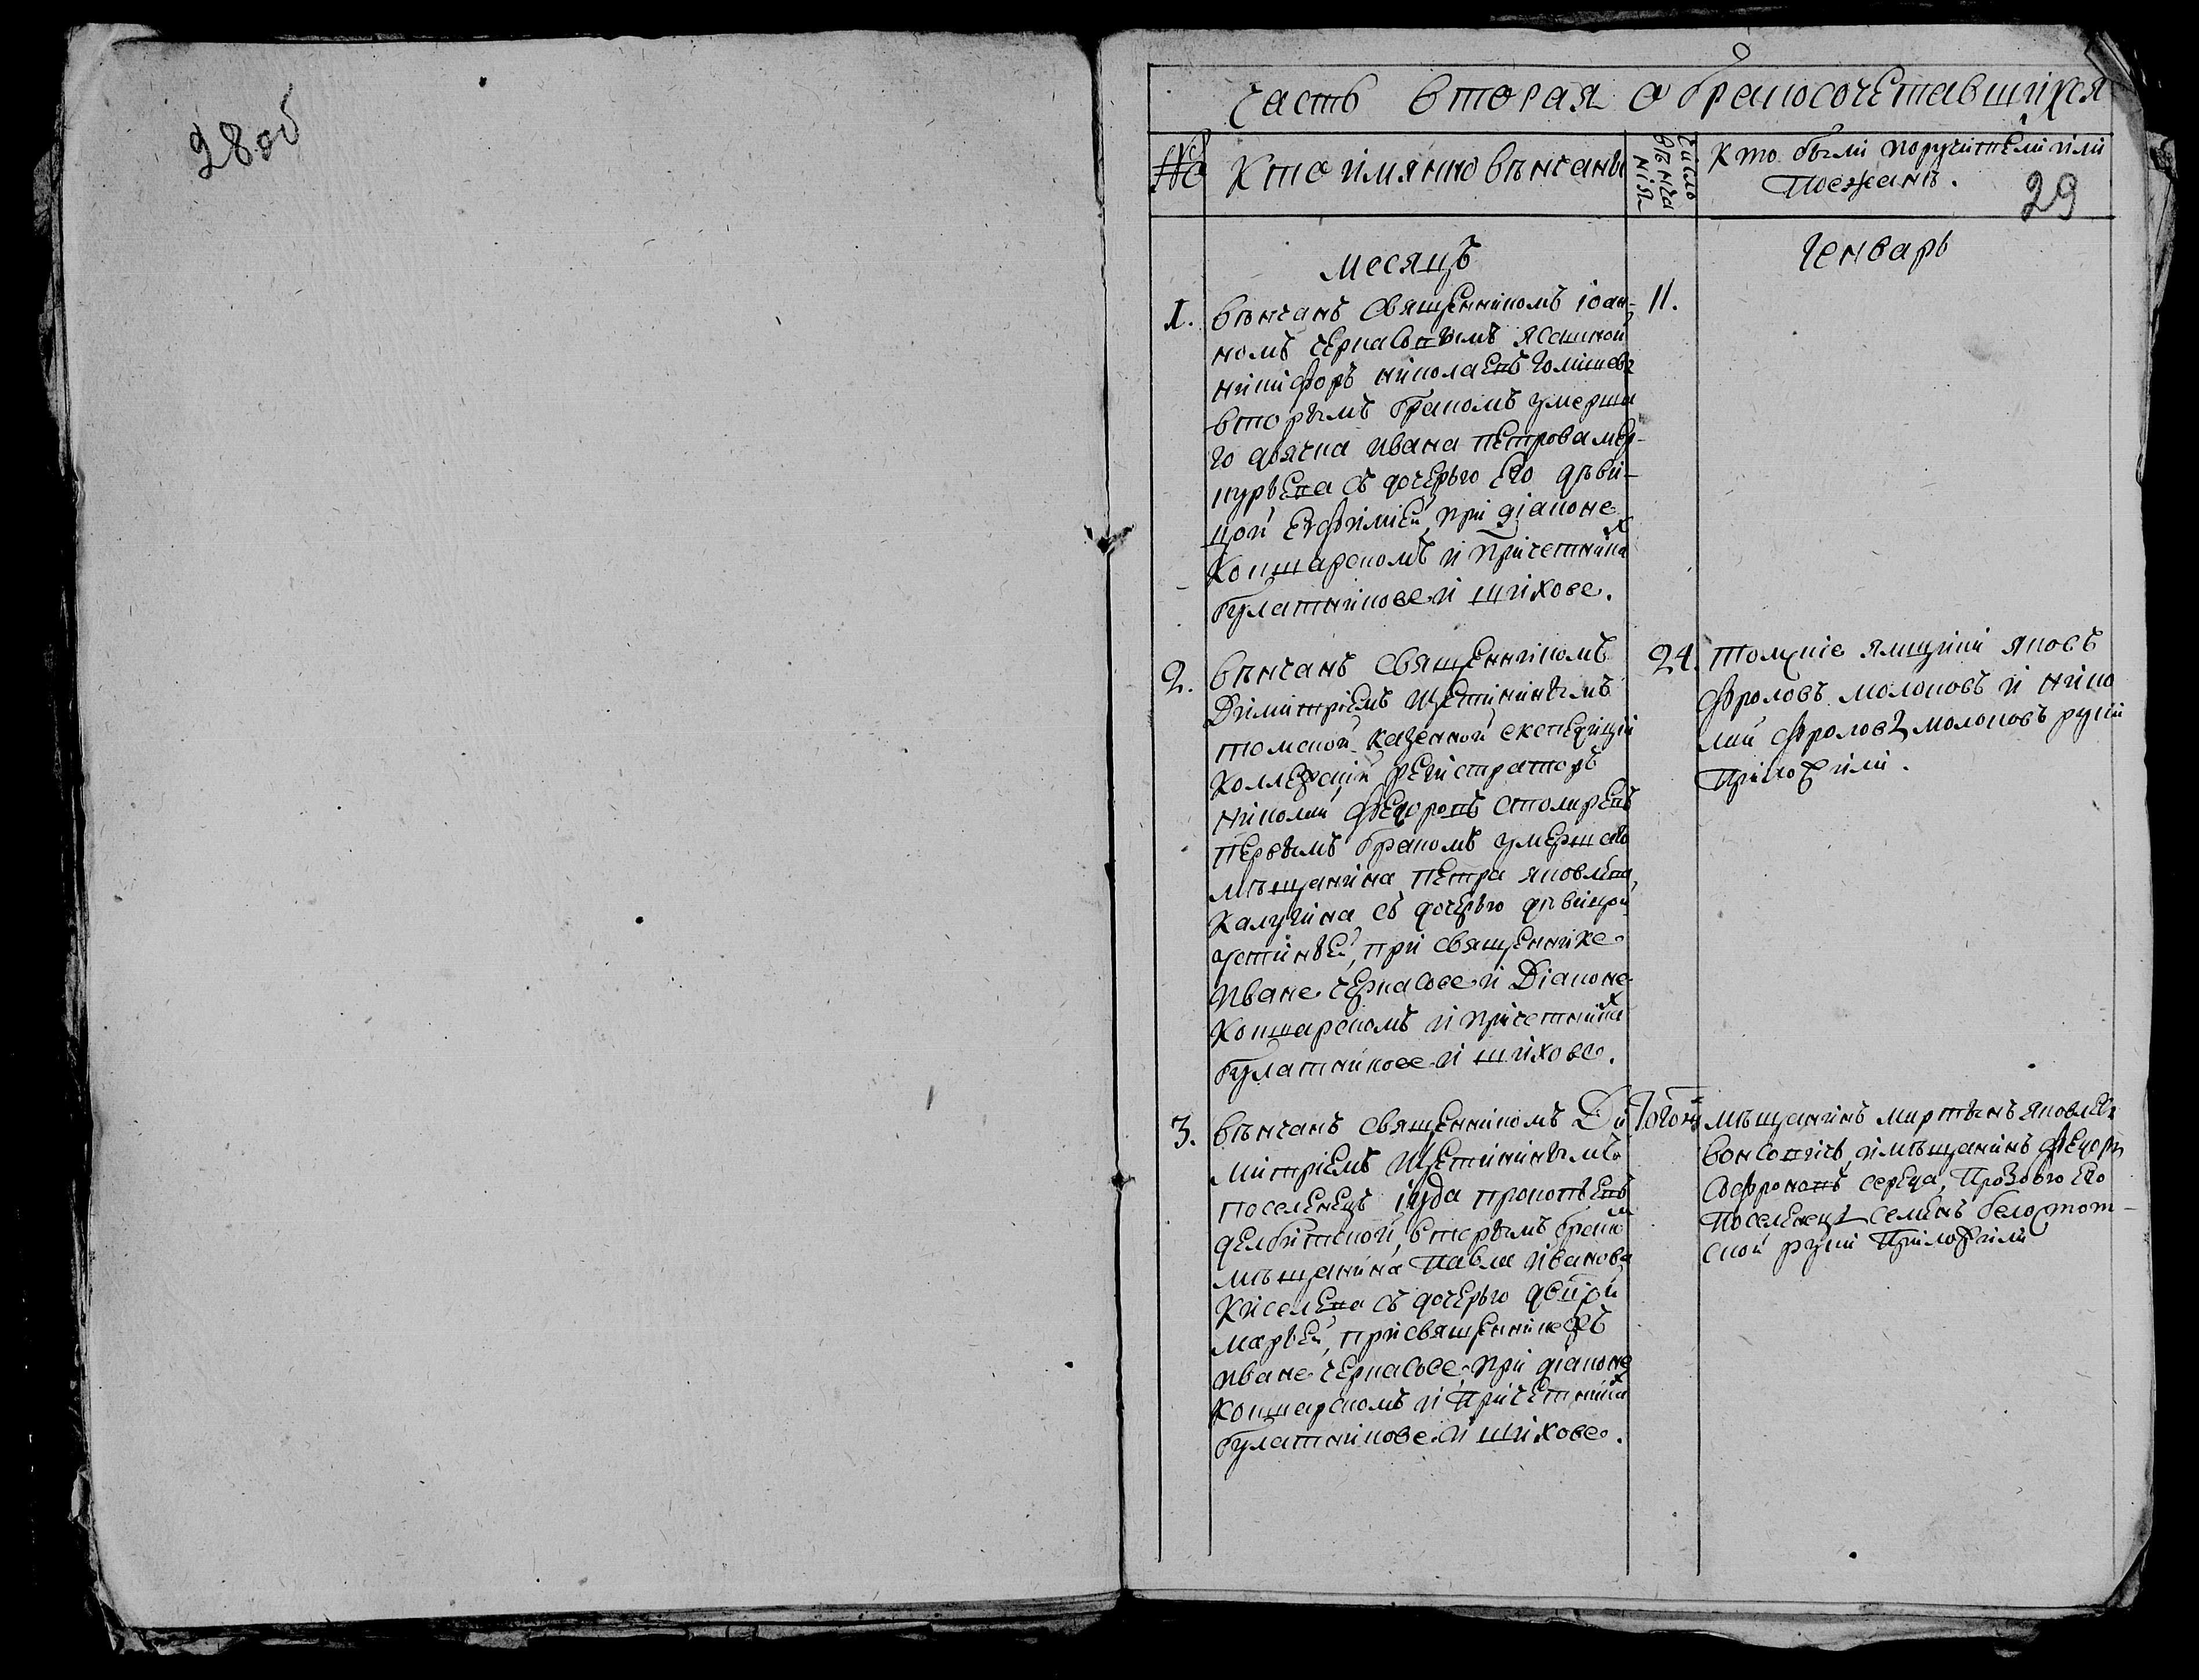 28 об
Часть вторая о бракосочетавшихся
№
Кто имянно венчаны
Число
венча
нія
Кто были поручители или
Поезжанъ.
29
Месяцъ
Генварь
1.
венчанъ Священникомъ іоан-
номъ черкасовымъ ясашной
никифоръ николаевъ
вторымъ бракомъ умерша
го дьячка ивана петрова
съ дочерью его деви-
цой Евфиміей, при діаконе
Кошарскомъ и причетника
х
булатникове и шихове.
11.
2.
венчанъ Священникомъ
Димитріемъ Щетининымъ
томской казенной експедиціи
коллежскій регистраторъ
николай федоровъ столяревъ
первымъ бракомъ умершего
мещанина петра яковлева
Калугина съ дочерью девицой
устиньей, при священнике
иване черкасове и Діаконе
Кошарскомъ и причетника
х
булатникове и шихове.
24.
томскіе ямщики яковъ
фроловъ молоковъ и нико
лай фроловъ молоковъ руки
приложили.
3.
венчанъ священникомъ Ди
митріемъ Щетининымъ
поселенецъ іуда прокопьевъ
вторымъ брако
м
мещанина павла иванова
Киселева съ дочерью
марьей, при священнике
иване черкасове, при діаконе
Кошарскомъ и причетника
х
булатникове и шихове.
Тогожъ
мещанинъ мартынъ яковлевъ
и мещанинъ федоръ
софроновъ середа, прозбою его
поселенецъ семенъ белостот-
ской руки приложили